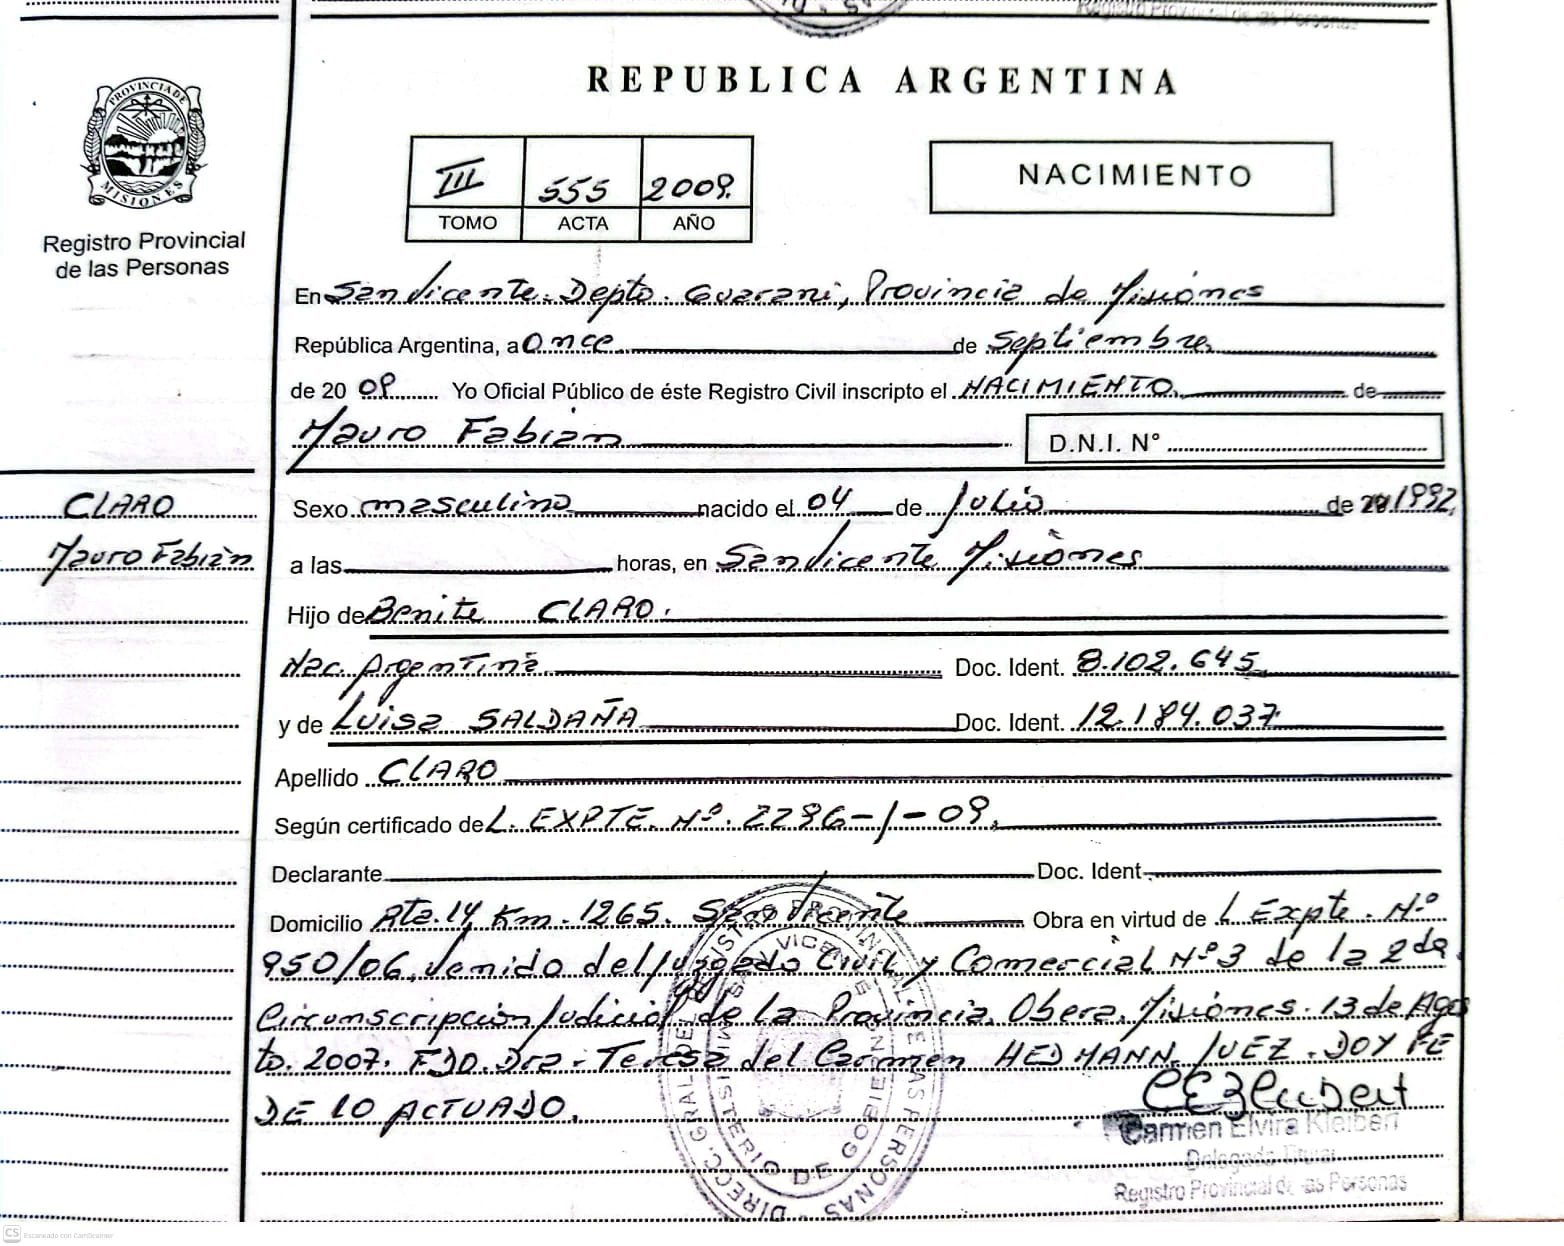 Registro Provincial de las Personas
REPUBLICA ARGENTINA
PROVINCIA DE MISIONES
Registro Provincial
de las Personas
III 555 2009.
TOMO ACTA AÑO
NACIMIENTO
En San Vicente. Depto. Guarani, Provincia de Misiones
República Argentina, a once de Septiembre
de 20 09 Yo Oficial Público de éste Registro Civil inscripto el NACIMIENTO de
Mauro Fabián
D.N.I. N°
CLARO
Mauro Fabián
Sexo masculino nacido el 04 de Julio de 1992
a las horas, en San Vicente Misiones
Hijo de Benite CLARO.
Nac. Argentina Doc. Ident. 8.102.645
y de Luisa SALDAÑA Doc. Ident. 12.184.037
Apellido CLARO
Según certificado de L. EXPTE. Nº. 2286-J-09.
Declarante Doc. Ident
Domicilio Rta. 14 Km. 1265. San Vicente Obra en virtud de L Expte. Nº
950/06, venido del Juzgado Civil y Comercial Nº 3 de la 2da.
Circunscripción Judicial de la Provincia. Obera, Misiones. 13 de Agos
to. 2007. FDO. Dra. Teresa del Carmen HEDMANN. JUEZ. DOY FE
DE LO ACTUADO.
Carmen Elvira Kleibert
Delegado Titular
Registro Provincial de las Personas
CS Escaneado con CamScanner